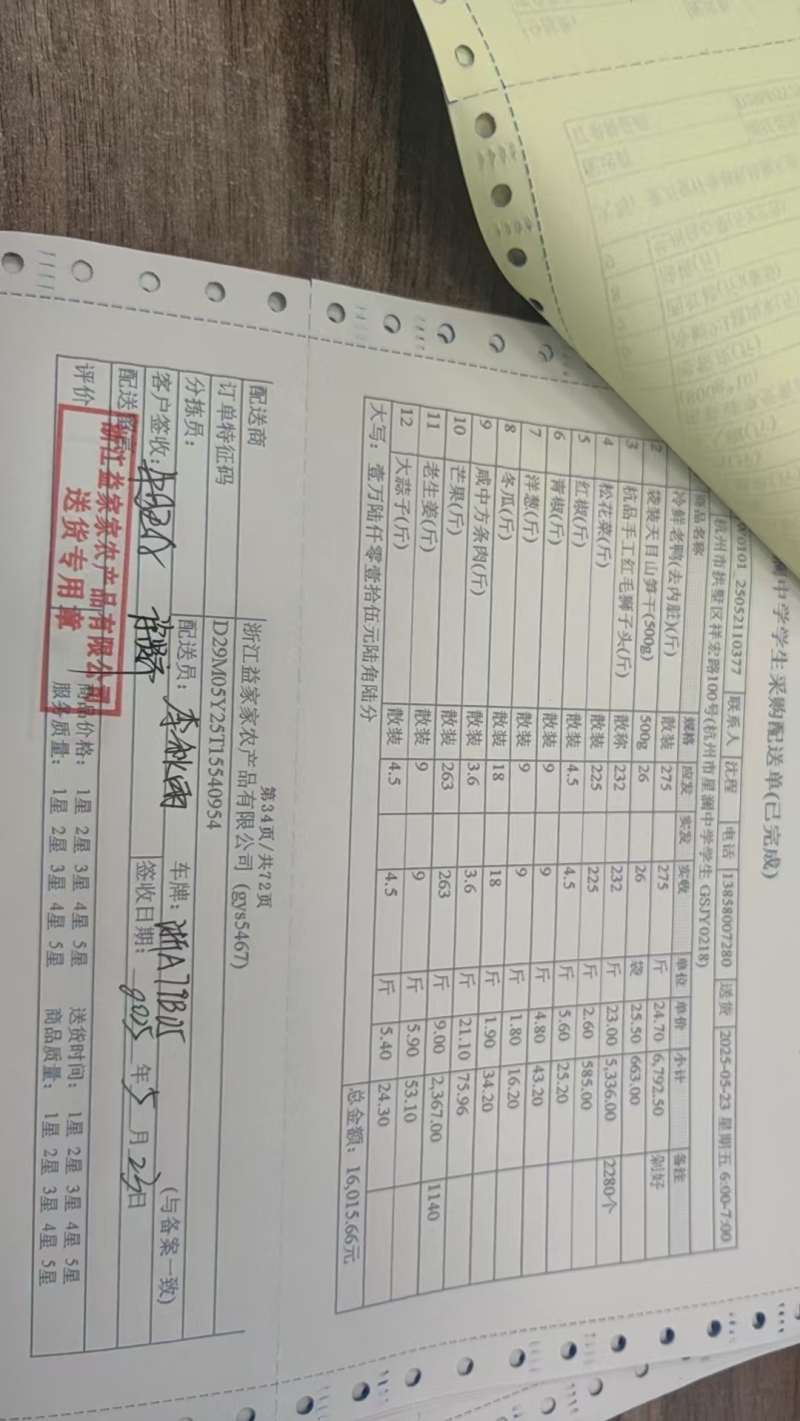 中学学生采购配送单(已完成)
25052110377 联系人 沈程 电话 13858007280 送货 2025-05-23 星期五 6:00-7:00
杭州市拱墅区祥宏路100号(杭州市星澜中学学生 GSJY0218)
商品名称 规格 应发 实发 实收 单位 单价 小计 备注
冷鲜老鸭(去内脏)(斤) 散装 275 275 斤 24.70 6,792.50 剁好
2 袋装天目山笋干(500g) 500g 26 26 袋 25.50 663.00
3 杭品手工红毛狮子头(斤) 散称 232 232 斤 23.00 5,336.00 2280个
4 松花菜(斤) 散装 225 225 斤 2.60 585.00
5 红椒(斤) 散装 4.5 4.5 斤 5.60 25.20
6 青椒(斤) 散装 9 9 斤 4.80 43.20
7 洋葱(斤) 散装 9 9 斤 1.80 16.20
8 冬瓜(斤) 散装 18 18 斤 1.90 34.20
9 咸中方条肉(斤) 散装 3.6 3.6 斤 21.10 75.96
10 芒果(斤) 散装 263 263 斤 9.00 2,367.00 1140
11 老生姜(斤) 散装 9 9 斤 5.90 53.10
12 大蒜子(斤) 散装 4.5 4.5 斤 5.40 24.30
大写: 壹万陆仟零壹拾伍元陆角陆分 总金额: 16,015.66元
第34页/共72页
配送商 浙江益家家农产品有限公司 (gys5467)
订单特征码 D29M05Y25T15540954
分拣员: 配送员: 李秋雨 车牌: (与备案一致)
客户签收: 签收日期: 2025 年 5 月 23 日
配送
评价 商品价格: 1星 2星 3星 4星 5星 送货时间: 1星 2星 3星 4星 5星
服务质量: 1星 2星 3星 4星 5星 商品质量: 1星 2星 3星 4星 5星
浙江益家家农产品有限公司
送货专用章